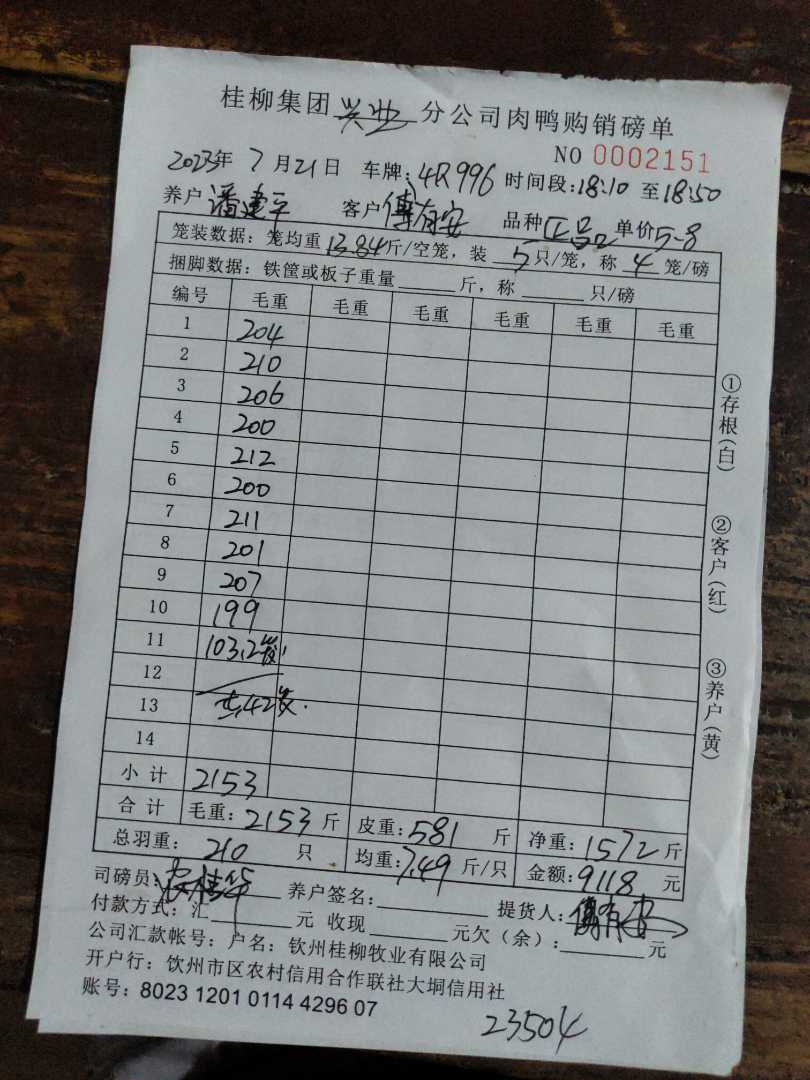 桂柳集团兴业分公司肉鸭购销磅单
NO 0002151
2023年7月21日 车牌:4R996 时间段:18:10至18:50
养户潘建平 客户傅有安 品种正品 单价5-8
笼装数据：笼均重13.84斤/空笼，装5只/笼，称4笼/磅
捆脚数据：铁筐或板子重量____斤，称____只/磅
编号 毛重 毛重 毛重 毛重 毛重 毛重
1 204
2 210
3 206
4 200
5 212
6 200
7 211
8 201
9 207
10 199
11 103,2
12
13 共,42
14
小计 2153
合计 毛重:2153斤 皮重:581斤 净重:1572斤
总羽重:210只 均重:7.49斤/只 金额:9118元
司磅员: 养户签名: 提货人:傅有安
付款方式:汇____元 收现____元欠(余):____元
公司汇款帐号：户名：钦州桂柳牧业有限公司
开户行：钦州市区农村信用合作联社大垌信用社
账号：8023 1201 0114 4296 07
23504
①存根(白)
②客户(红)
③养户(黄)